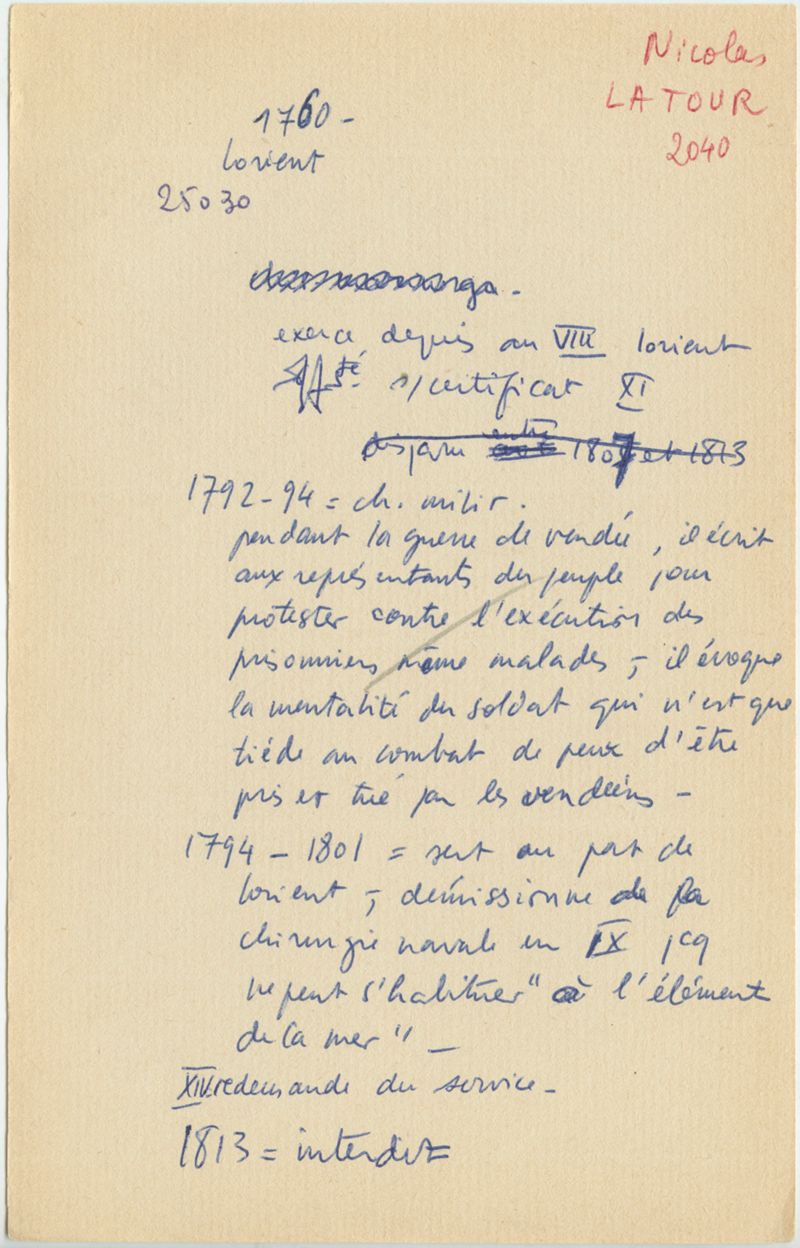 Nicolas
LATOUR
2040
1760 -
lorient
25030
exerce depuis an VIII lorient
s/certificat XI
disparu entre 1807 et 1813
1792-94 = ch. milit.
pendant la guerre de vendée, il écrit
aux représentants du peuple pour
protester contre l'exécution des
prisonniers même malades ; - il évoque
la mentalité du soldat qui n'est que
tiède au combat de peux d'être
pris et tué par les vendéens -
1794 - 1801 = sert au port de
lorient ; - démissionne de la
chirurgie navale en IX pcq
ne peut s'habituer " à l'élément
de la mer " -
XIV. redemande du service -
1813 = interdit